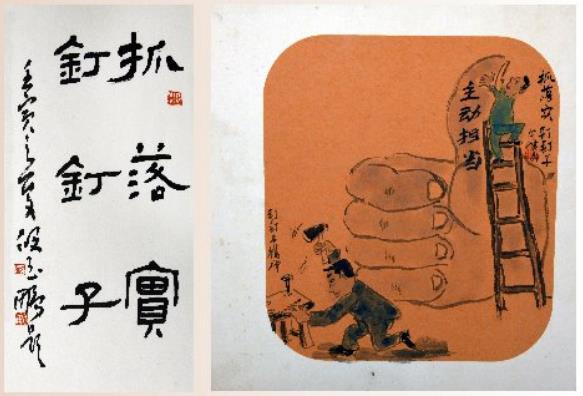 抓落實
釘釘子
壬寅之夏 鵬題
主动担当
抓落实 钉钉子
钉钉子精神